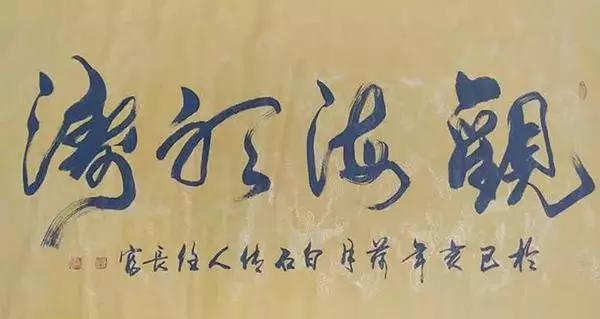 觀海聽濤
於己亥年荷月白石情人徐長富